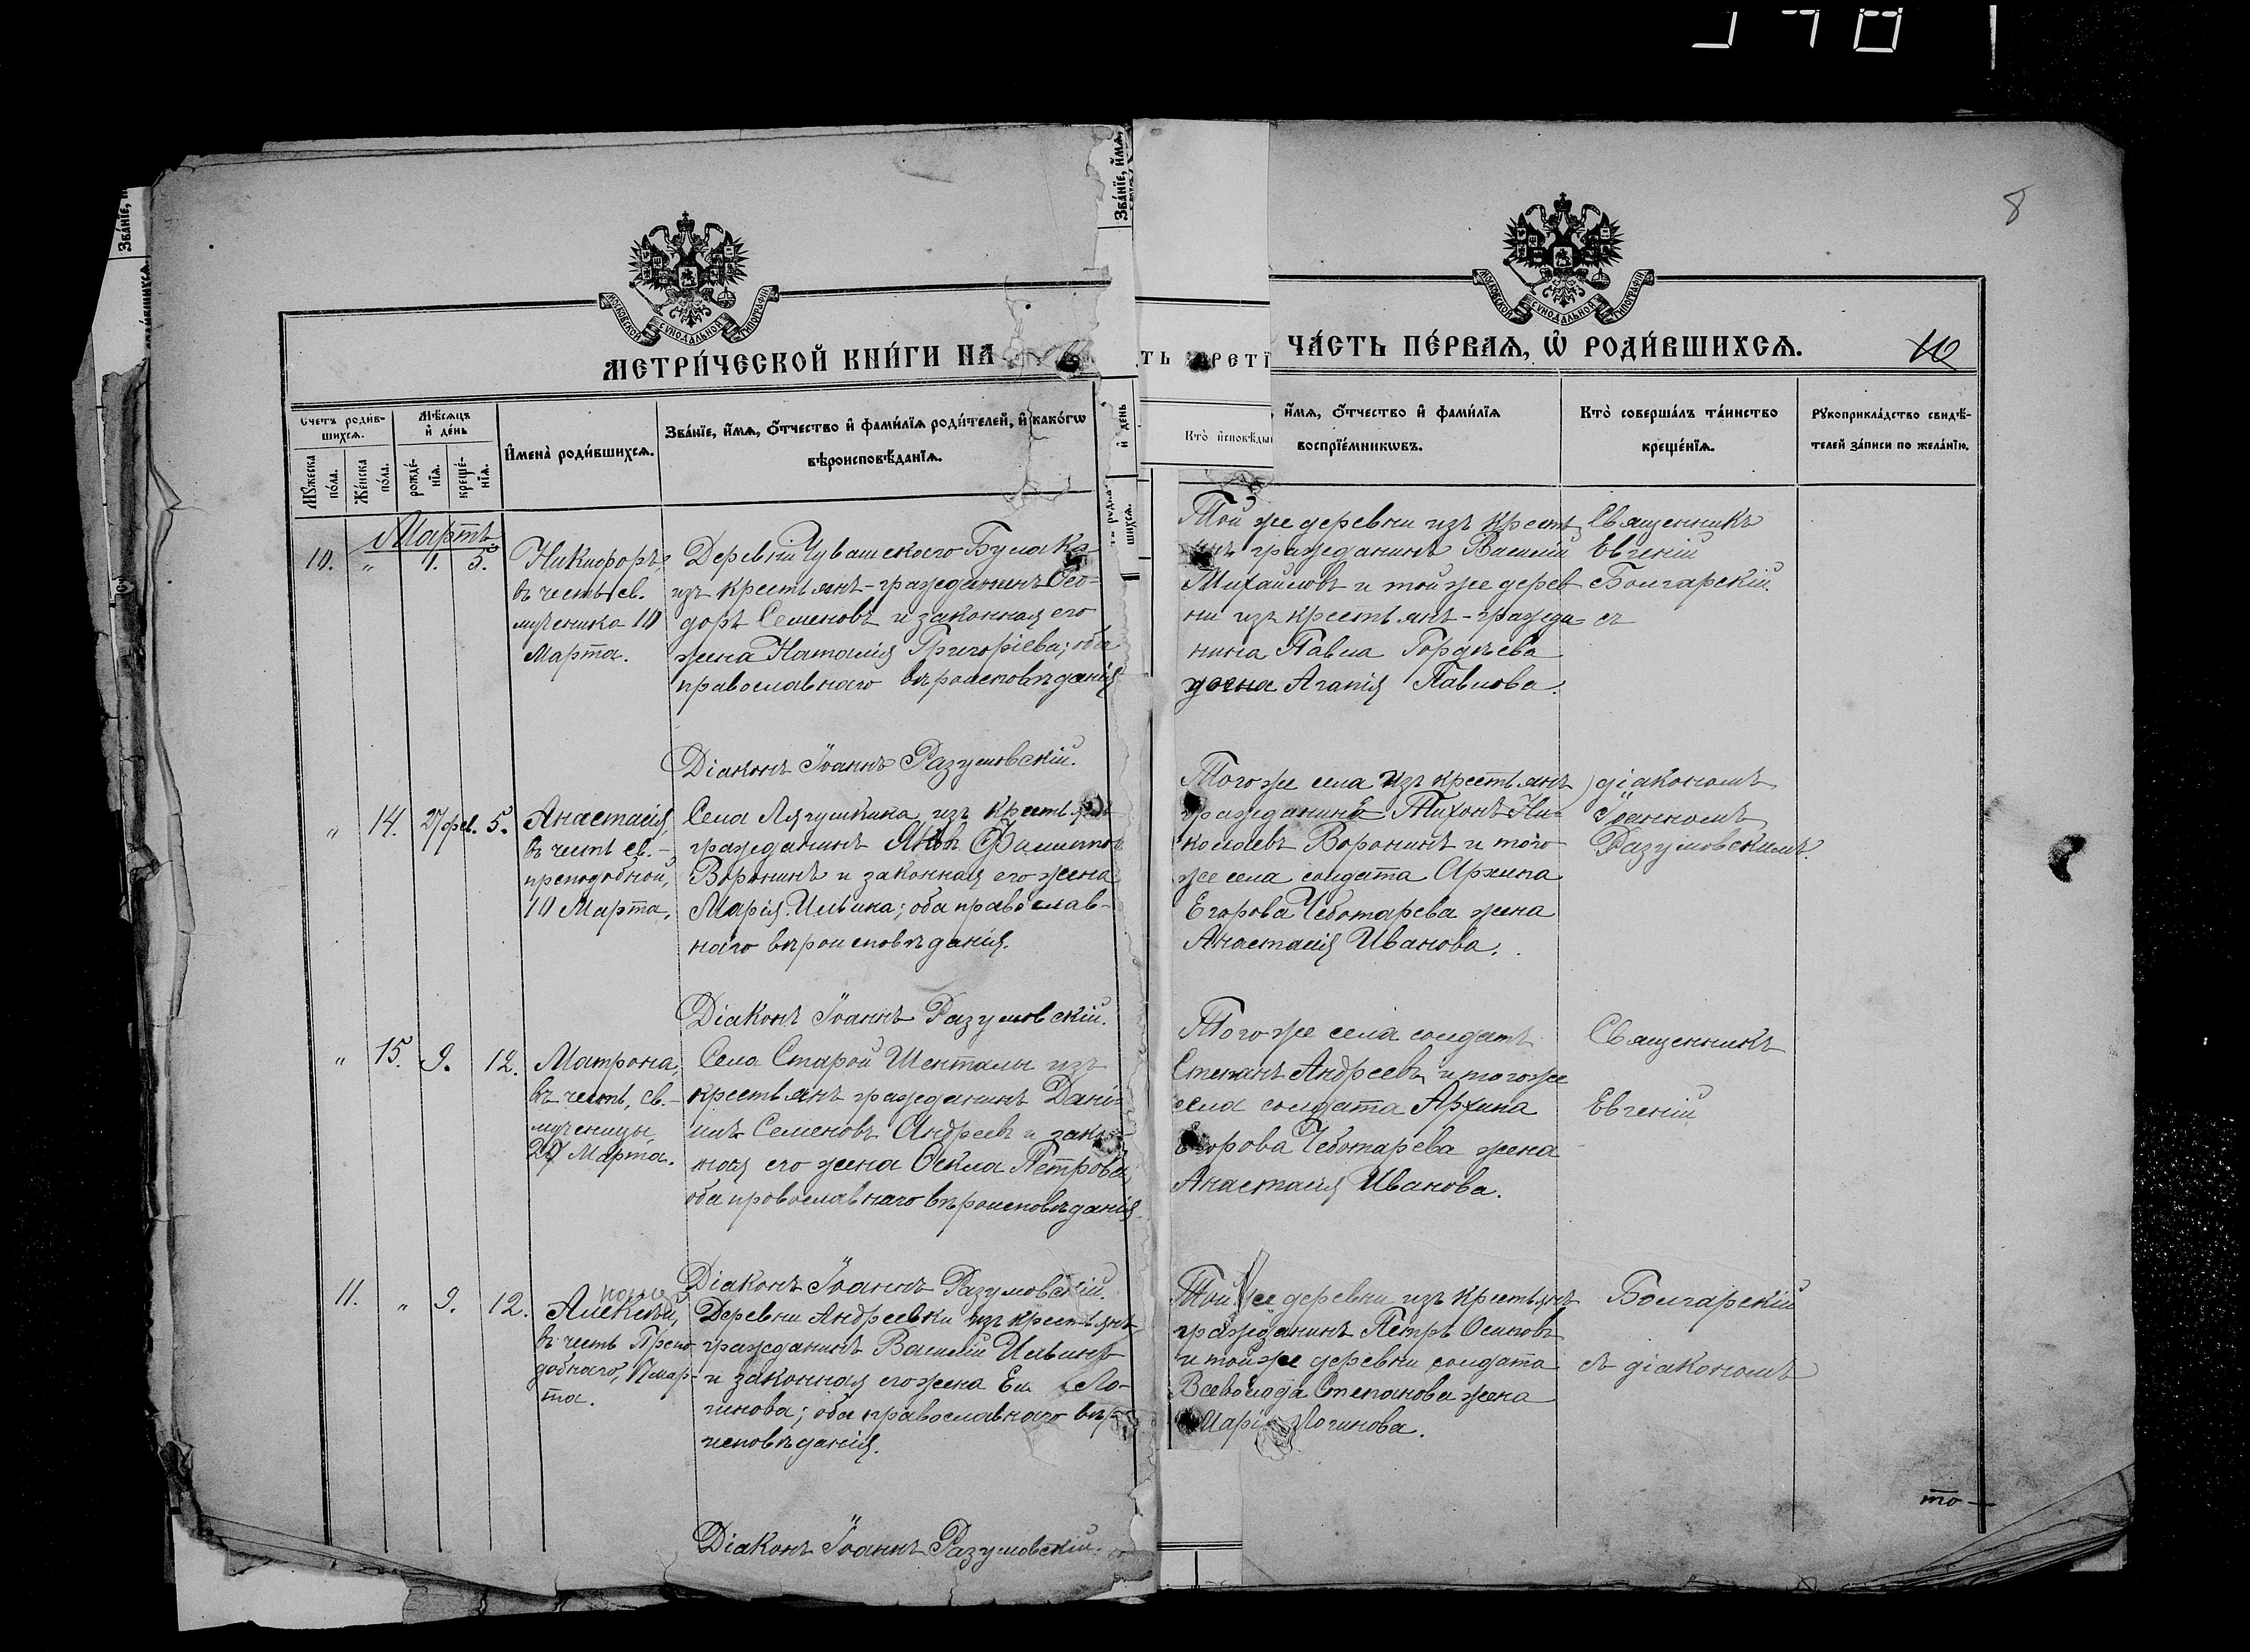 МЕТРИ́ЧЕСКОЙ КНИ́ГИ НА
ЧА́СТЬ ПЕ́РВАѦ, Ѡ҆ РОДИ́ВШИХСѦ.
8
10
Счетъ роди́вшихсѧ.
Мꙋжеска по́ла.
Же́нска по́ла.
Мѣ́сѧцъ и҆ де́нь
рожде́нїѧ.
креще́нїѧ.
И҆мена̀ роди́вшихсѧ.
Зва́нїе, и҆́мѧ, ѻ҆́тчество и҆ фами́лїѧ роди́телей, и҆ како́гѡ
вѣроисповѣ́данїѧ.
и҆́мѧ, ѻ҆́тчество и҆ фами́лїѧ
воспрїе́мникѡвъ.
Кто̀ соверша́лъ та́инство
креще́нїѧ.
Рꙋкоприкла́дство свидѣ́-
телей за́писи по жела́нїю.
Мартъ
10. " 1. 5.
Никифоръ,
въ честь св.
мученика 10
Марта.
Деревни Чувашскаго Булака
изъ крестьянъ-гражданинъ Ѳео-
доръ Семеновъ и законная его
жена Наталія Григоріева; оба
православнаго вѣроисповѣданія
Діаконъ Іоаннъ Разумовскій.
Той же деревни изъ крестья
гражданинъ Василій
Михайловъ и той же дерев
ни изъ крестьянъ-гражда-
нина Павла Гордѣева
дочна Агапія Павлова.
Священникъ
Евгеній
Болгарскій.
съ
" 14. 27 фев. 5.
Анастасія,
въ честь св.-
преподобной,
10 Марта,
Села Лягушкина, изъ крестьянъ
гражданинъ Яковъ
Воронинъ и законная его жена
Марія Ильина; оба православ-
наго вѣроисповѣданія.
Діаконъ Іоаннъ Разумовскій.
Того же села изъ крестьянъ
гражданинъ Тихонъ Ни-
колаевъ Воронинъ и того
же села солдата Архипа
Егорова Чеботарева жена
Анастасія Иванова.
діакономъ
Іоанномъ
Разумовскимъ.
" 15. 9. 12.
Матрона,
въ честь, св.-
мученицы,
27 Марта.
Села Старой Шенталы изъ
крестьянъ гражданинъ Дані-
илъ Семеновъ Андреевъ и закон-
ная его жена Ѳекла Петрова
оба православнаго вѣроисповѣданія
Діаконъ Іоаннъ Разумовскій.
Того же села солдатъ
Степанъ Андреевъ и того же
села солдата Архипа
Егорова Чеботарева жена
Анастасія Иванова.
Священникъ
Евгеній
11. " 9. 12.
Алексѣй,
въ честь Препо
добнаго, 17 мар-
та.
Деревни Андреевки изъ крестьянъ
гражданинъ Василій Ильинъ
и законная его жена Ел Ло-
гинова; оба православнаго вѣро-
исповѣданія.
Діаконъ Іоаннъ Разумовскій.
Той же деревни изъ крестьянъ
гражданинъ Петръ Осиповъ
и той же деревни солдата
Всеволода Степанова жена
Марія Логинова.
Болгарскій
съ діакономъ
то-